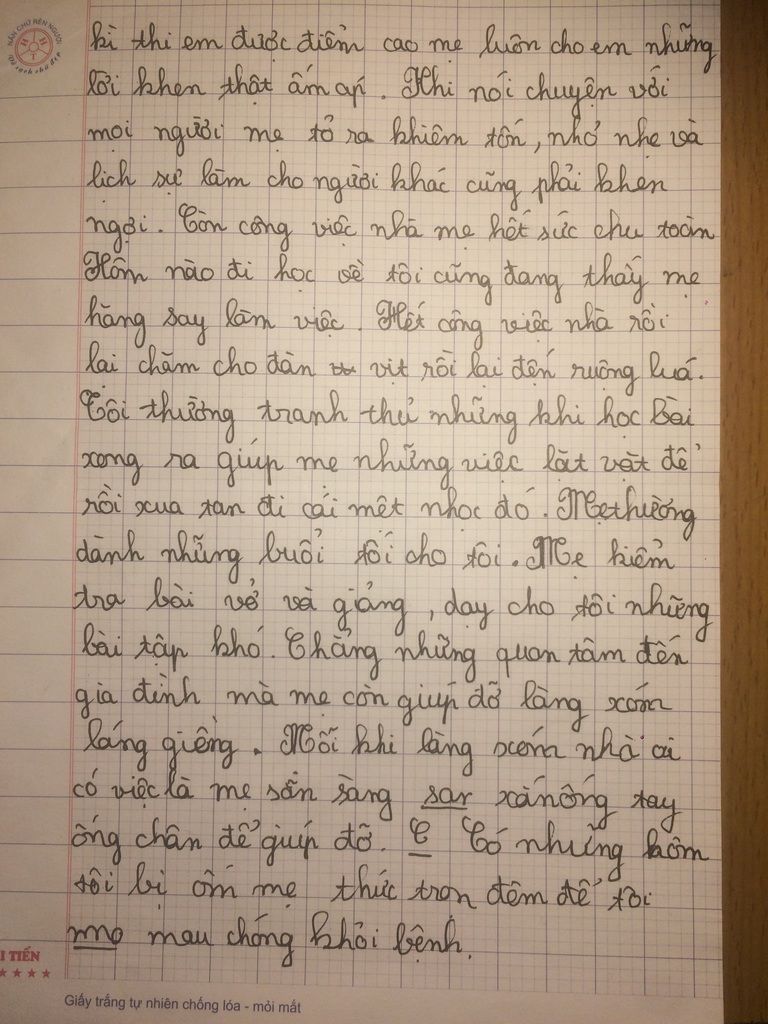 NẮN CHỮ RÈN NGƯỜI
Vở sạch chữ đẹp
kì thi em được điểm cao mẹ luôn cho em những
lời khen thật ấm áp. Khi nói chuyện với
mọi người mẹ tỏ ra khiêm tốn, nhỏ nhẹ và
lịch sự làm cho người khác cũng phải khen
ngợi. Còn công việc nhà mẹ hết sức chu toàn
Hôm nào đi học về tôi cũng đang thấy mẹ
hăng say làm việc. Hết công việc nhà rồi
lại chăm cho đàn vịt rồi lại đến ruộng luá.
Tôi thường tranh thủ những khi học bài
xong ra giúp mẹ những việc lặt vặt để
rồi xua tan đi cái mệt nhọc đó. Mẹ thường
dành những buổi tối cho tôi. Mẹ kiểm
tra bài vở và giảng, dạy cho tôi những
bài tập khó. Chẳng những quan tâm đến
gia đình mà mẹ còn giúp đỡ làng xóm
láng giềng. Mỗi khi làng xóm nhà ai
có việc là mẹ sẵn sàng sar xắn ống tay
ống chân để giúp đỡ. C Có những hôm
tôi bị ốm mẹ thức trọn đêm để tôi
mno mau chóng khỏi bệnh.
I TIẾN
Giấy trắng tự nhiên chống lóa - mỏi mắt